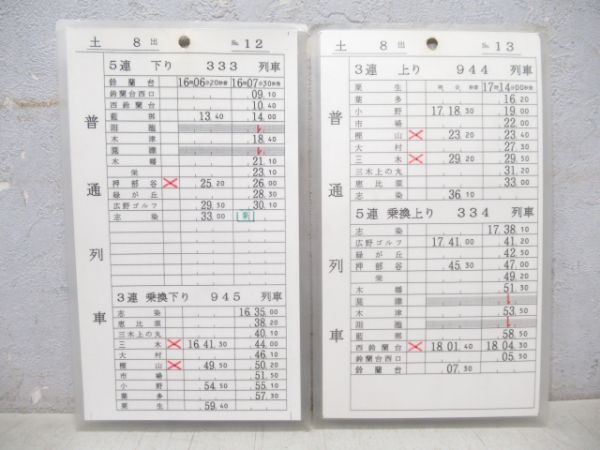 土 8 出 No. 12
5連 下り 333 列車
鈴蘭台 16時06分20秒着 16時07分30秒発
鈴蘭台西口 .09.10
西鈴蘭台 .10.40
藍那 .13.40 .14.00
川池
木津 .18.40
見津
木幡 .21.10
栄 .23.10
押部谷 .25.20 .26.00
緑が丘 .28.30
広野ゴルフ .29.50 .30.10
志染 .33.00
普通列車
3連 乗換下り 945 列車
志染 16.35.00
恵比須 .38.20
三木上の丸 .40.10
三木 16.41.30 .44.00
大村 .46.10
樫山 .49.50 .50.20
市場 .51.50
小野 .54.50 .55.10
葉多 .57.30
粟生 .59.40
土 8 出 No. 13
3連 上り 944 列車
粟生 17時14分00秒発
葉多 .16.20
小野 17.18.30 .19.00
市場 .22.00
樫山 .23.20 .23.40
大村 .27.30
三木 .29.20 .29.50
三木上の丸 .31.20
恵比須 .33.00
志染 .36.10
普通列車
5連 乗換上り 334 列車
志染 17.38.10
広野ゴルフ 17.41.00 .41.20
緑が丘 .42.50
押部谷 .45.30 .47.00
栄 .49.20
木幡 .51.30
見津
木津 .53.50
川池
藍那 .58.50
西鈴蘭台 18.01.40 18.04.30
鈴蘭台西口 .05.50
鈴蘭台 .07.30